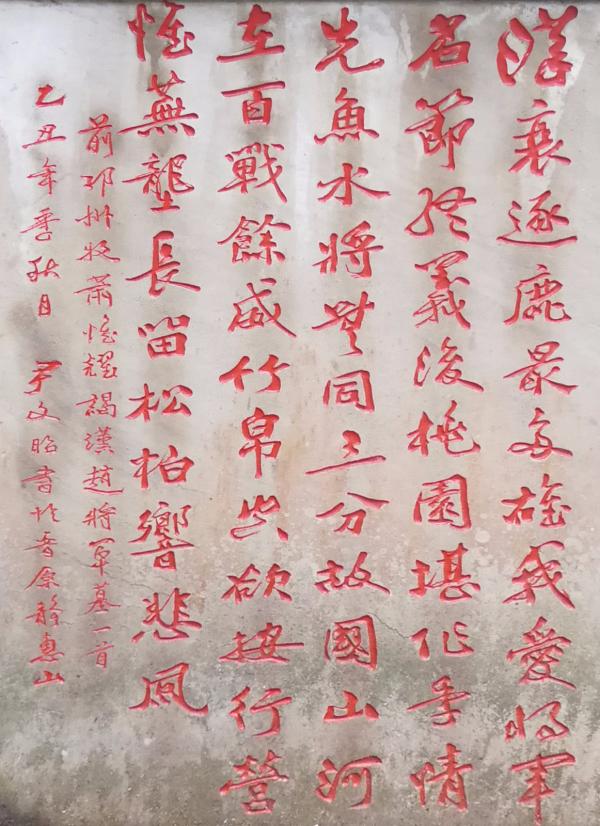 漢衰逐鹿最多雄我愛將軍
名節終義後桃園堪作季情
先魚水將無同三分故國山河
在百戰餘威竹帛欲按行營
惟蕪壟長留松柏響悲風
前邛州牧蕭惟耀謁漢趙將軍墓一首
乙丑年季秋月 尹文昭書於晉原靜惠山